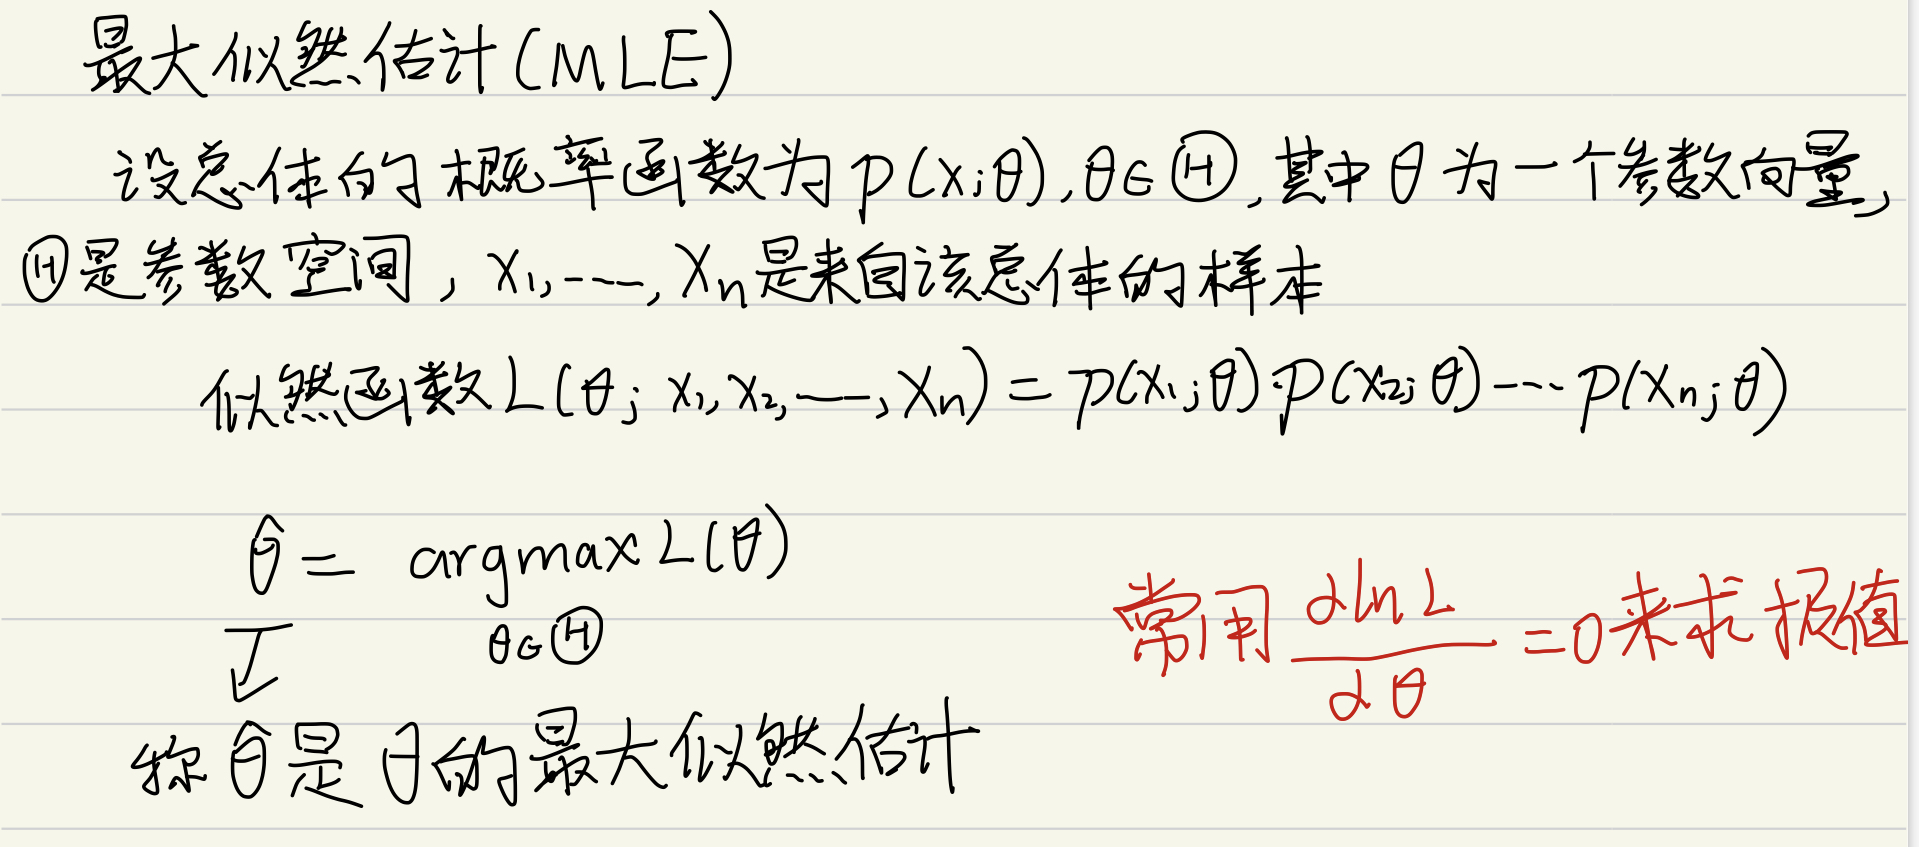 最大似然估计(MLE)
设总体的概率函数为p(x;θ),θ∈Ⓗ,其中θ为一个参数向量,
Ⓗ是参数空间,x₁,---,xₙ是来自该总体的样本
似然函数L(θ; x₁,x₂,——,xₙ)=p(x₁;θ)·p(x₂;θ)---p(xₙ;θ)
θ̂= argmax L(θ)
θ∈Ⓗ
常用 dlnL/dθ =0来求极值
称θ̂是θ的最大似然估计